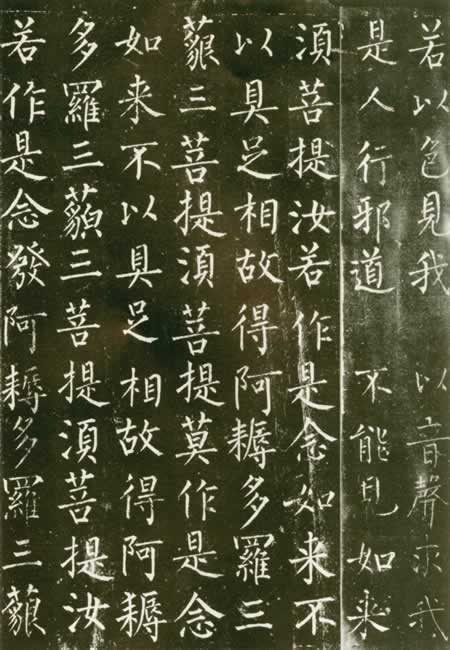 若以色見我　以音聲求我
是人行邪道　不能見如来
須菩提汝若作是念如来不
以具足相故得阿耨多羅三
藐三菩提須菩提莫作是念
如来不以具足相故得阿耨
多羅三藐三菩提須菩提汝
若作是念發阿耨多羅三藐